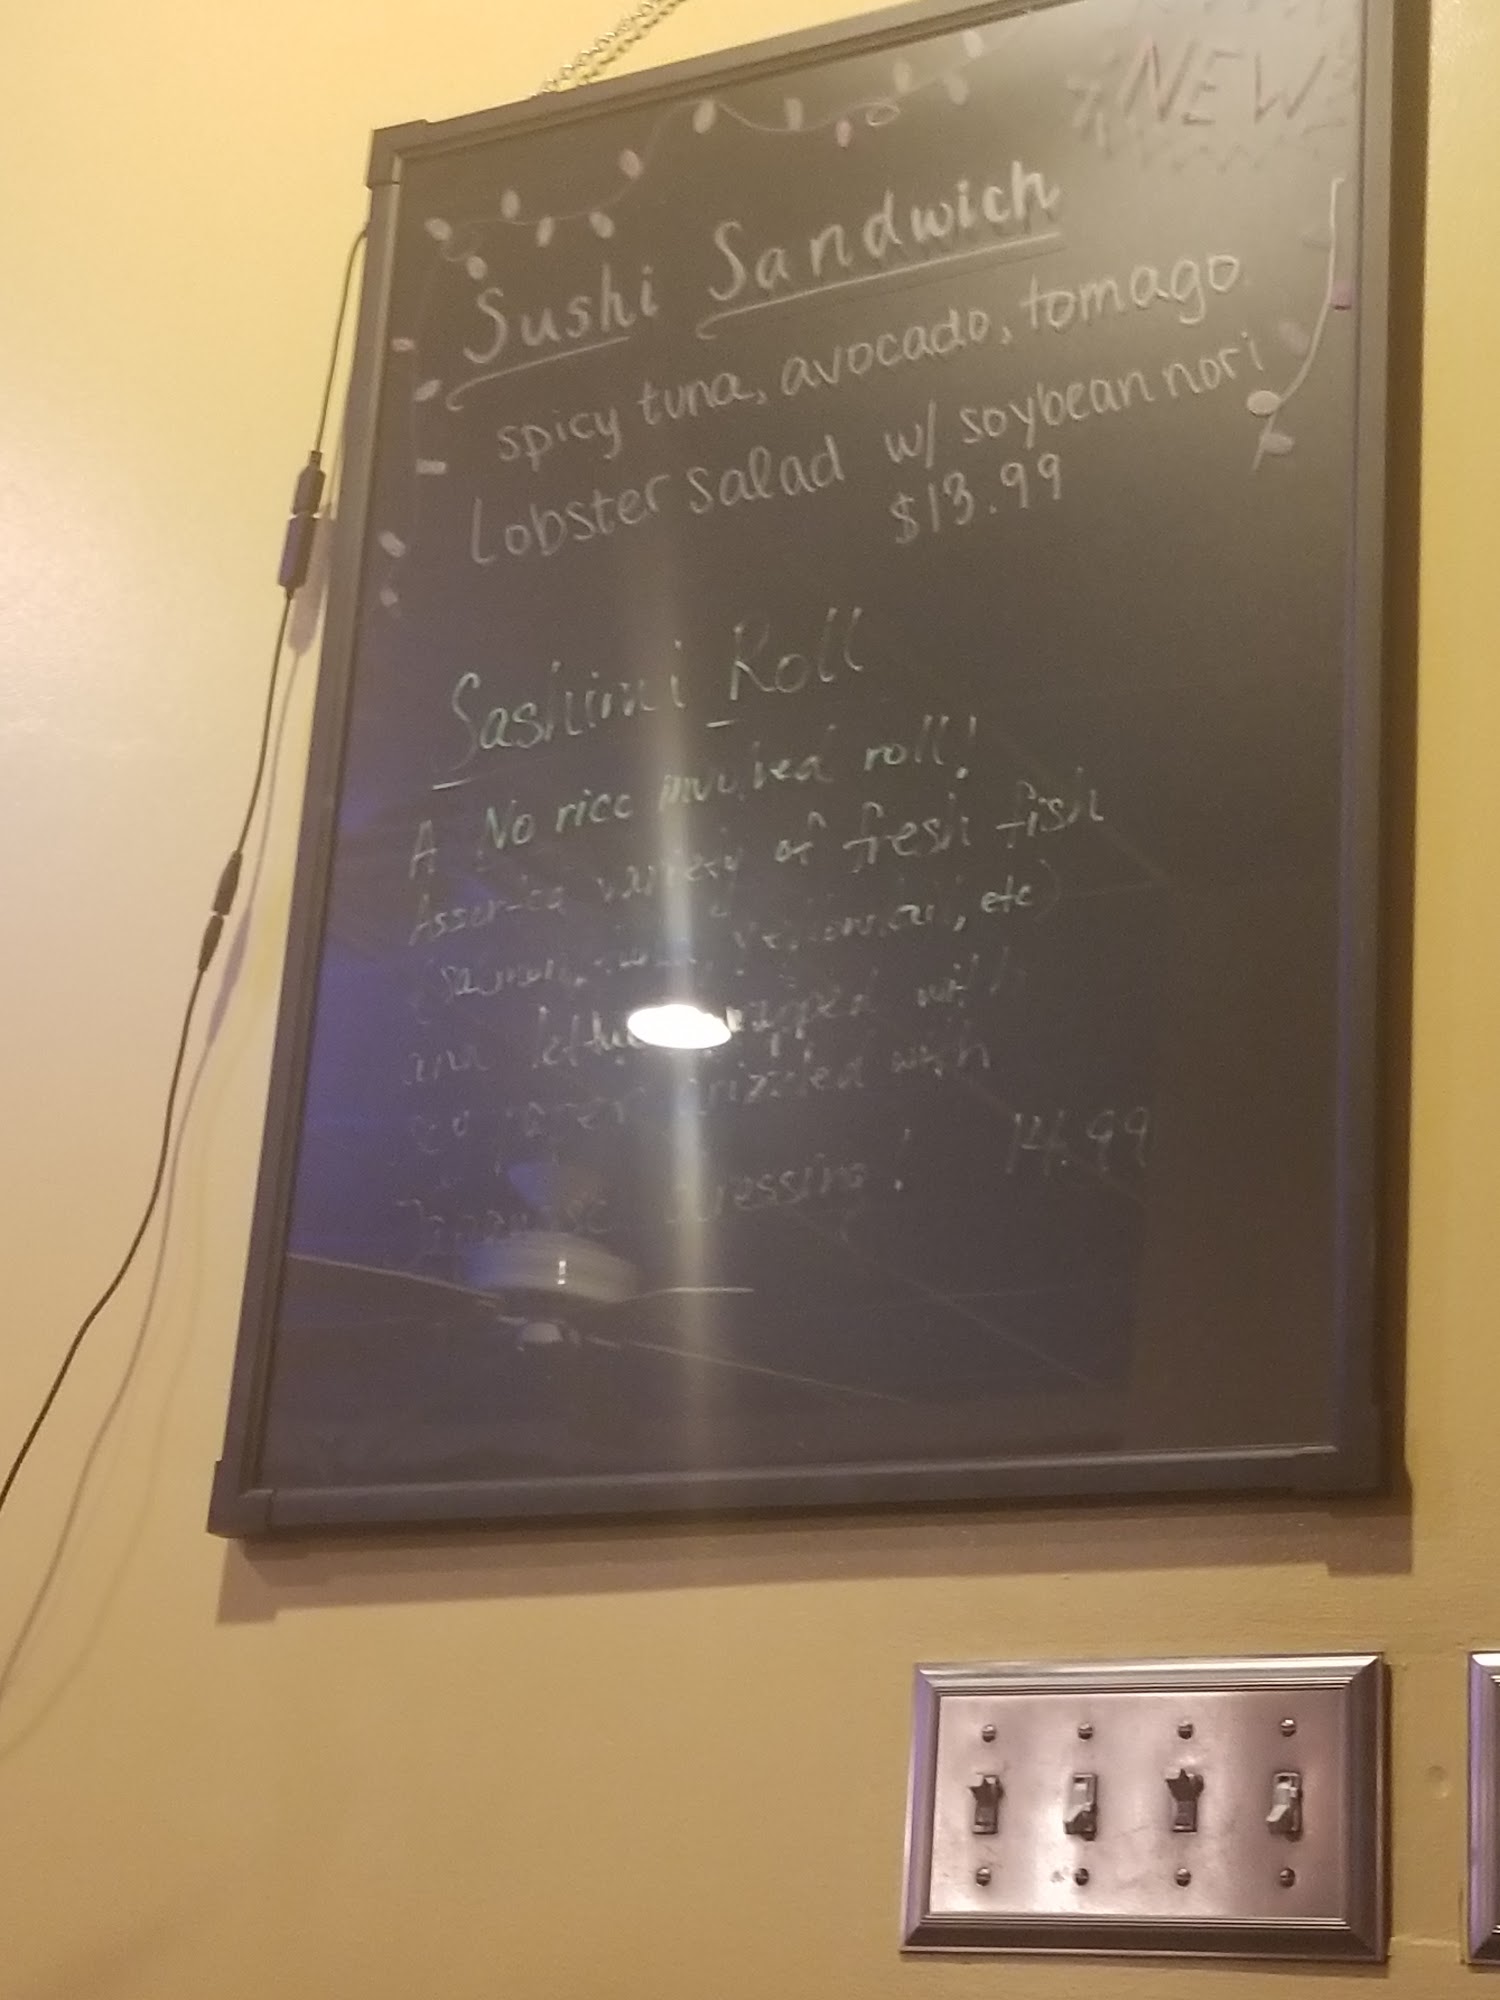 NEW
Sushi Sandwich
spicy tuna, avocado, tomago
Lobster salad w/ soybean nori
$13.99
Sashimi Roll
A No rice involved roll!
Assorted variety of fresh fish
(salmon, yellowtail, etc)
and wrapped with
drizzled with
Japanese dressing! 14.99